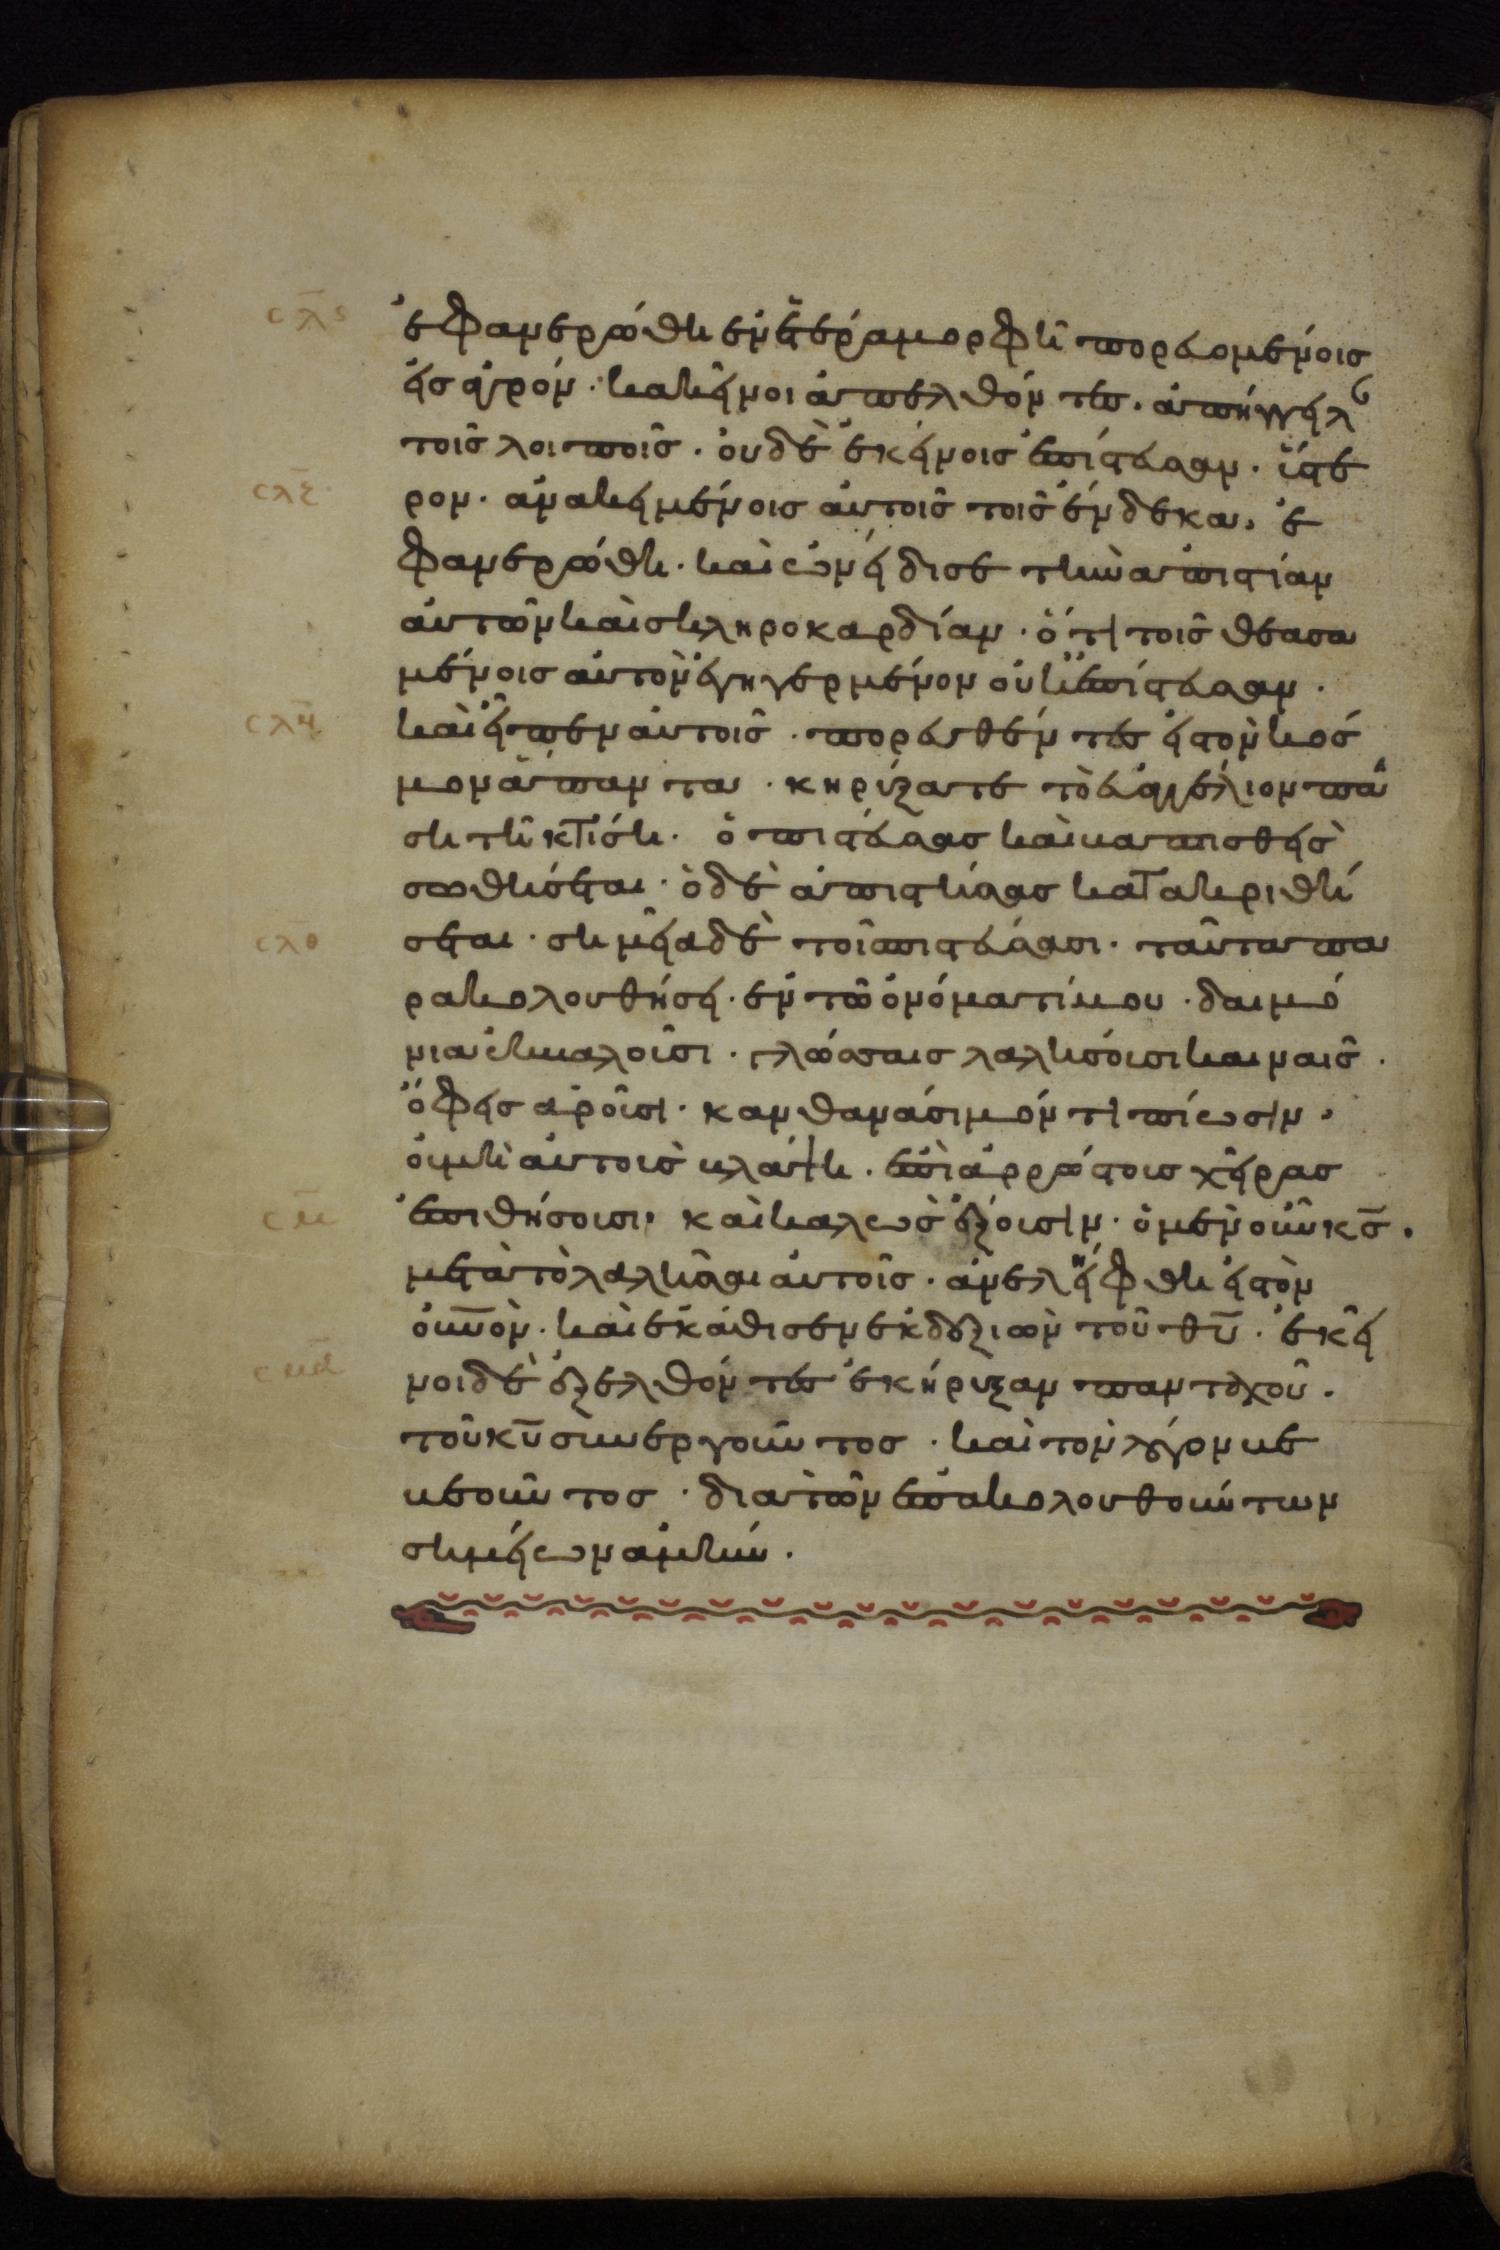 σλϛ ἐφανερώθη ἐν ἑτέρα μορφῆ πορευομένοις
εἰς ἀγρόν · κακεῖνοι ἀπελθόντες · ἀπήγγειλ
τοῖς λοιποῖς · οὐδὲ ἐκείνοις ἐπίστευσαν · ὕστε
σλζ ρον · ἀνακειμένοις αὐτοῖς τοῖς ἕνδεκα · ἐ
φανερώθη · καὶ ὠνείδισε τὴν ἀπιστίαν
αὐτῶν καὶ σκληροκαρδίαν · ὅτι τοῖς θεασα
μένοις αὐτὸν ἐγηγερμένον οὐκ ἐπίστευσαν ·
σλη καὶ εἶπεν αὐτοῖς · πορευθέντες εἰς τὸν κόσ
μον ἅπαντα · κηρύξατε τὸ εὐαγγέλιον πά
ση τῆ κτίσει · ὁ πιστεύσας καὶ βαπτισθεὶς
σωθήσεται · ὁ δὲ ἀπιστήσας κατακριθή
σλθ σεται · σημεῖα δὲ τοῖς πιστεύσασι · ταῦτα πα
ρακολουθήσει · ἐν τῶ ὀνόματί μου · δαιμό
νια ἐκβαλοῦσι · γλώσσαις λαλήσουσι καιναῖς ·
ὄφεις ἀροῦσι · κἂν θανάσιμόν τι πίωσιν ·
οὐ μὴ αὐτοὺς βλάψη · ἐπὶ ἀρρώστους χεῖρας
σμ ἐπιθήσουσι · καὶ καλῶς ἕξουσιν · ὁ μὲν οὖν κς ·
μετὰ τὸ λαλῆσαι αὐτοῖς · ἀνελήφθη εἰς τὸν
οὐνον · καὶ ἐκάθισεν ἐκ δεξιῶν τοῦ θυ · ἐκεῖ
σμα νοι δὲ ἐξελθόντες ἐκήρυξαν πανταχοῦ ·
τοῦ κυ συνεργοῦντος · καὶ τὸν λόγον βε
βαιοῦντος · διὰ τῶν ἐπακολουθούντων
σημείων ἀμήν ·